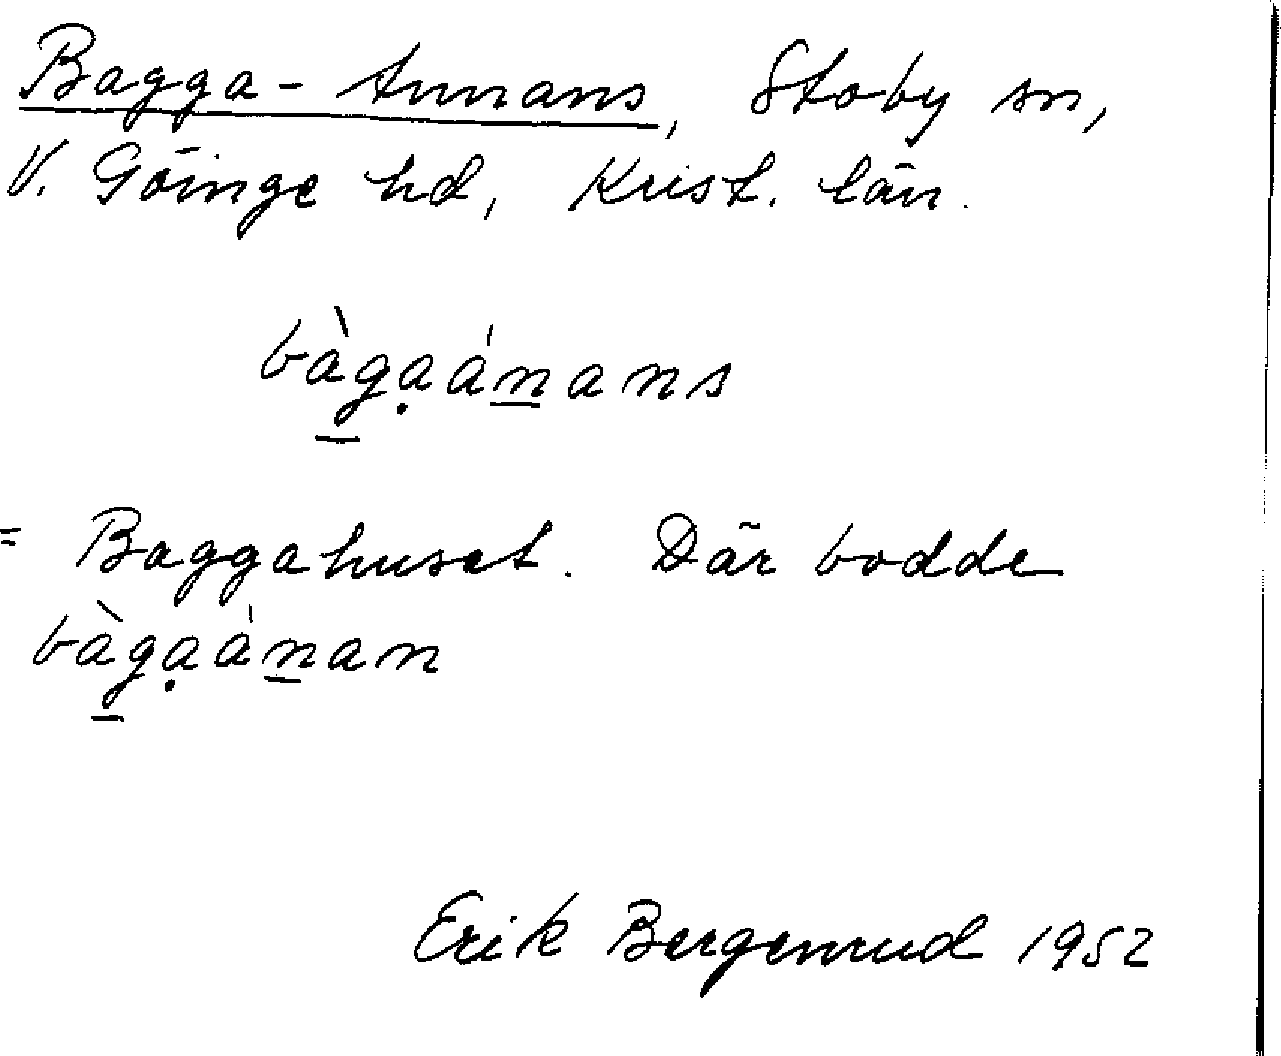 Bagga-Annans, Stoby sn,
V. Göinge hd, Krist. län.
bàg̲ạán̲ans
= Baggahuset. Där bodde
bàg̲ạán̲an
Erik Bergenrud 1952